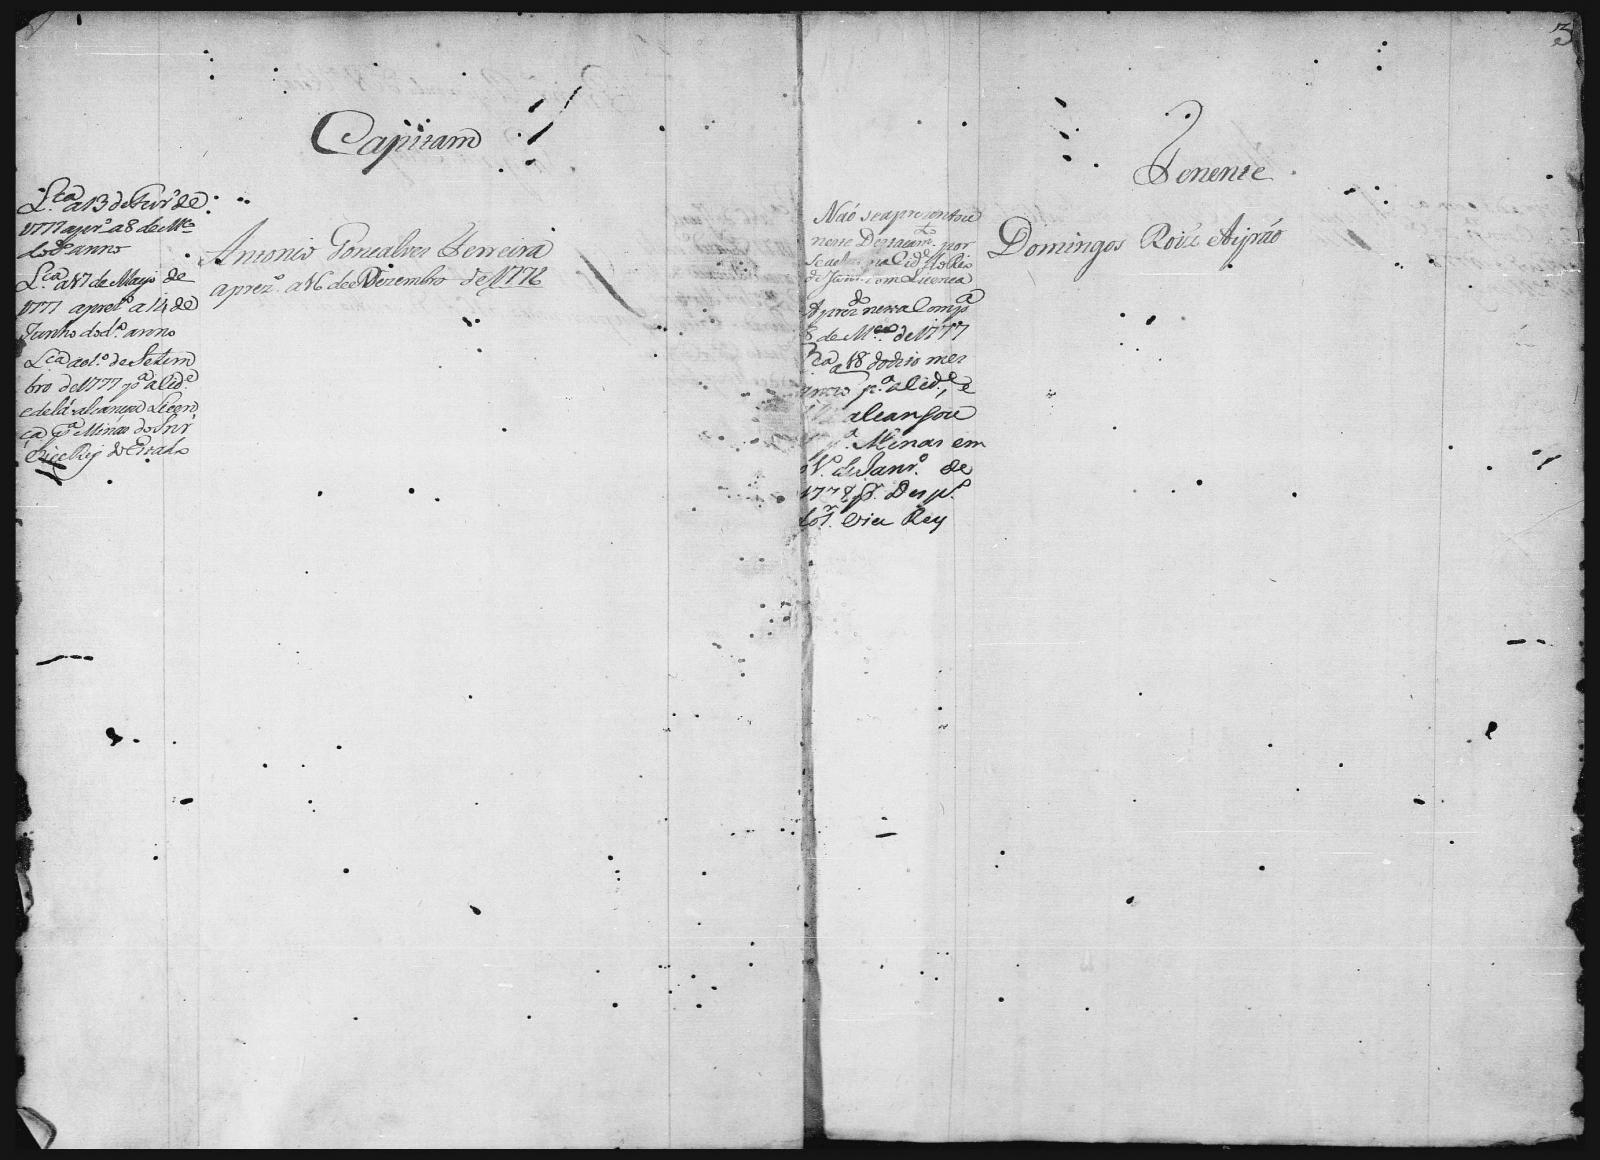 Capitam
L.ca a 13 de Fevr.o de
1777 aprz.o a 8 de M.co
do d.o anno
L.ca a 17 de Mayo de
1777 aprez.o a 14 de
Junho do d.o anno
L.ca ao 1.o de Setem
bro de 1777 p.a a Cid.e
e de lá alcançou Licen
ça p.a Minas do Snr
Vice Rey do Estado
Antonio Gonçalves Ferreira
aprez.o a 16 de Dezembro de 1776
3
Tenente
Naõ se aprezentou
neste Destacam.to por
se achar na Cid.e do Rio
de Janr.o com Licença
Aprez.do nesta Comp.a
8 de M.ço de 1777
L.ca a 18 do dito mes
anno p.a a Cid.e, e
alcançou
p.a Minas em
de Janr.o de
1778 p.r Desp.o
do S.r Vice Rey
Domingos Roiz Ayrão